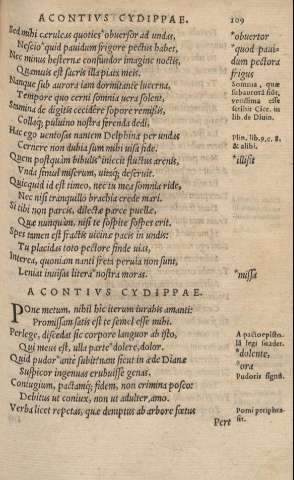 ACONTIVS CYDIPPAE. 109
Sed mihi cæruleas quoties *obuersor ad undas, *obuertor
Nescio quid pauidum frigore pectus habet, *quod paui-
Nec minus hesternæ confundor imagine noctis, dum pectora
Quamuis est sacris illa piata meis. frigus
Nanque sub aurora iam dormitante lucerna, Somnia, quæ
Tempore quo cerni somnia uera solent, sub aurorã fiũt,
Stamina de digitis cecidêre sopore remissis, scribit Cicer. in
Collaq; puluino nostra ferenda dedi. lib. de Diuin.
Hac ego uentosas nantem Delphina per undas Plin. lib. 9. c. 8.
Cernere non dubia sum mihi uisa fide. & alibi.
Quem postquàm bibulis* iniecit fluctus arenis, *illisit
Vnda simul miserum, uitaq; deseruit.
Quicquid id est timeo, nec tu mea somnia ride,
Nec nisi tranquillo brachia crede mari.
Si tibi non parcis, dilectæ parce puellæ,
Quæ nunquam, nisi te sospite sospes erit.
Spes tamen est fractis uicinæ pacis in undis:
Tu placidas toto pectore finde uias,
Interea, quoniam nanti freta peruia non sunt,
Leniat inuisas litera* nostra moras. *missa
ACONTIVS CYDIPPAE.
POne metum, nihil hîc iterum iurabis amanti:
Promissam satis est te semel esse mihi.
Perlege, discedat sic corpore languor ab isto,
Qui meus est, ulla parte* dolere, dolor. *dolente,
Quid pudor* ante subit? nam sicut in æde Dianæ *ora
Suspicor ingenuas erubuisse genas. Pudoris signũ.
Coniugium, pactamq; fidem, non crimina posco:
Debitus ut coniux, non ut adulter, amo.
Verba licet repetas, quæ demptus ab arbore fœtus Pomi periphra-
Pert sis.